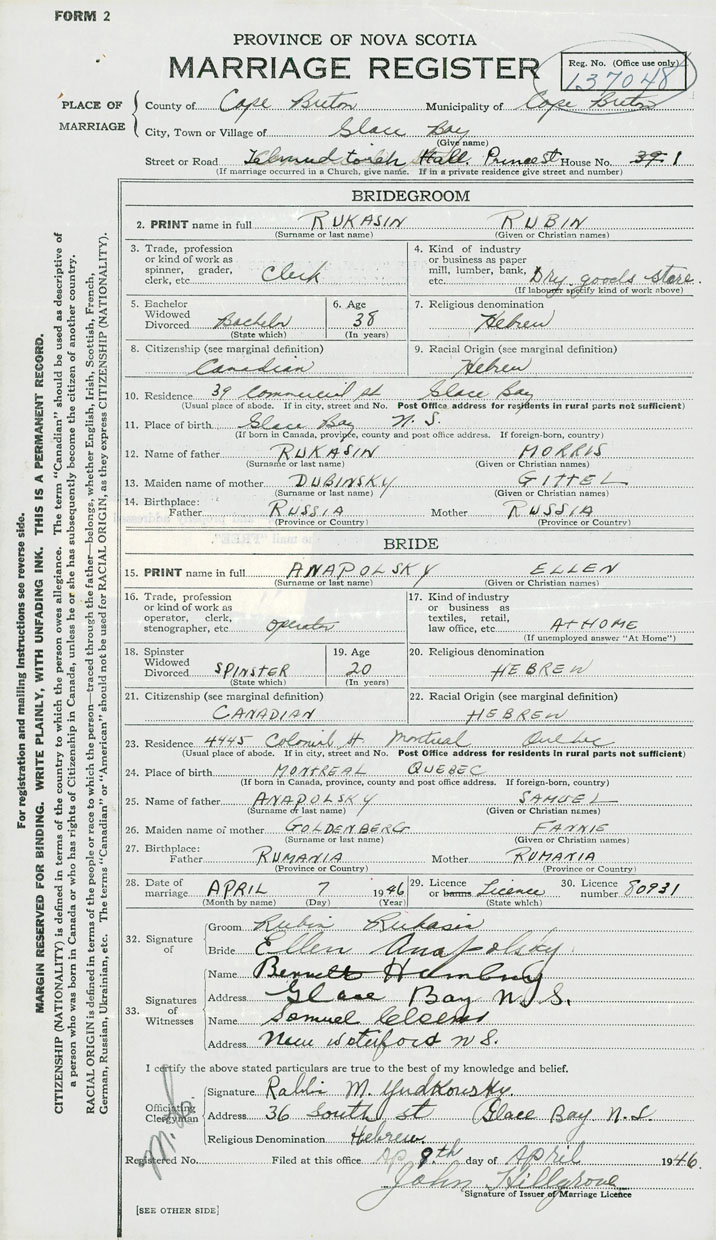 FORM 2
PROVINCE OF NOVA SCOTIA
MARRIAGE REGISTER
Reg. No. (Office use only)
137048
PLACE OF MARRIAGE
County of Cape Breton Municipality of Cape Breton
City, Town or Village of Glace Bay
(Give name)
Street or Road Talmud torah Hall. Prince st House No. 39. 1
(If marriage occurred in a Church, give name. If in a private residence give street and number)
BRIDEGROOM
2. PRINT name in full RUKASIN RUBIN
(Surname or last name) (Given or Christian names)
3. Trade, profession or kind of work as spinner, grader, clerk, etc. Clerk
4. Kind of industry or business as paper mill, lumber, bank, etc. Dry. goods store.
(If labourer specify kind of work above)
5. Bachelor Widowed Divorced Bachelor
(State which)
6. Age 38
(In years)
7. Religious denomination
Hebrew
8. Citizenship (see marginal definition)
Canadian
9. Racial Origin (see marginal definition)
Hebrew
10. Residence 39 Commercial st Glace Bay
(Usual place of abode. If in city, street and No. Post Office address for residents in rural parts not sufficient)
11. Place of birth Glace Bay N. S.
(If born in Canada, province, county and post office address. If foreign-born, country)
12. Name of father RUKASIN MORRIS
(Surname or last name) (Given or Christian names)
13. Maiden name of mother DUBINSKY GITTEL
(Surname or last name) (Given or Christian names)
14. Birthplace:
Father RUSSIA Mother RUSSIA
(Province or Country) (Province or Country)
BRIDE
15. PRINT name in full ANAPOLSKY ELLEN
(Surname or last name) (Given or Christian names)
16. Trade, profession or kind of work as operator, clerk, stenographer, etc. operator
17. Kind of industry or business as textiles, retail, law office, etc. AT HOME
(If unemployed answer "At Home")
18. Spinster Widowed Divorced SPINSTER
(State which)
19. Age 20
(In years)
20. Religious denomination
HEBREW
21. Citizenship (see marginal definition)
CANADIAN
22. Racial Origin (see marginal definition)
HEBREW
23. Residence 4445 Colonial st Montreal Quebec
(Usual place of abode. If in city, street and No. Post Office address for residents in rural parts not sufficient)
24. Place of birth MONTREAL QUEBEC
(If born in Canada, province, county and post office address. If foreign-born, country)
25. Name of father ANAPOLSKY SAMUEL
(Surname or last name) (Given or Christian names)
26. Maiden name of mother GOLDENBERG FANNIE
(Surname or last name) (Given or Christian names)
27. Birthplace:
Father RUMANIA Mother RUMANIA
(Province or Country) (Province or Country)
28. Date of marriage APRIL 7 1946
(Month by name) (Day) (Year)
29. Licence or banns Licence
(State which)
30. Licence number 80931
32. Signature of
Groom Rubin Rukasin
Bride Ellen Anapolsky
33. Signatures of Witnesses
Name Bennett
Address Glace Bay N.S.
Name Samuel
Address New Waterford N S.
I certify the above stated particulars are true to the best of my knowledge and belief.
Officiating Clergyman
Signature Rabbi M. Yudkowsky.
Address 36 South st Glace Bay N.S.
Religious Denomination Hebrew.
Registered No. Filed at this office Ap 9th day of April 1946.
John Hillgrove
Signature of Issuer of Marriage Licence
[SEE OTHER SIDE]
For registration and mailing instructions see reverse side.
MARGIN RESERVED FOR BINDING. WRITE PLAINLY, WITH UNFADING INK. THIS IS A PERMANENT RECORD.
CITIZENSHIP (NATIONALITY) is defined in terms of the country to which the person owes allegiance. The term "Canadian" should be used as descriptive of
a person who was born in Canada or who has rights of Citizenship in Canada, unless he or she has subsequently become the citizen of another country.
RACIAL ORIGIN is defined in terms of the people or race to which the person—traced through the father—belongs, whether English, Irish, Scottish, French,
German, Russian, Ukrainian, etc. The terms "Canadian" or "American" should not be used for RACIAL ORIGIN, as they express CITIZENSHIP (NATIONALITY).